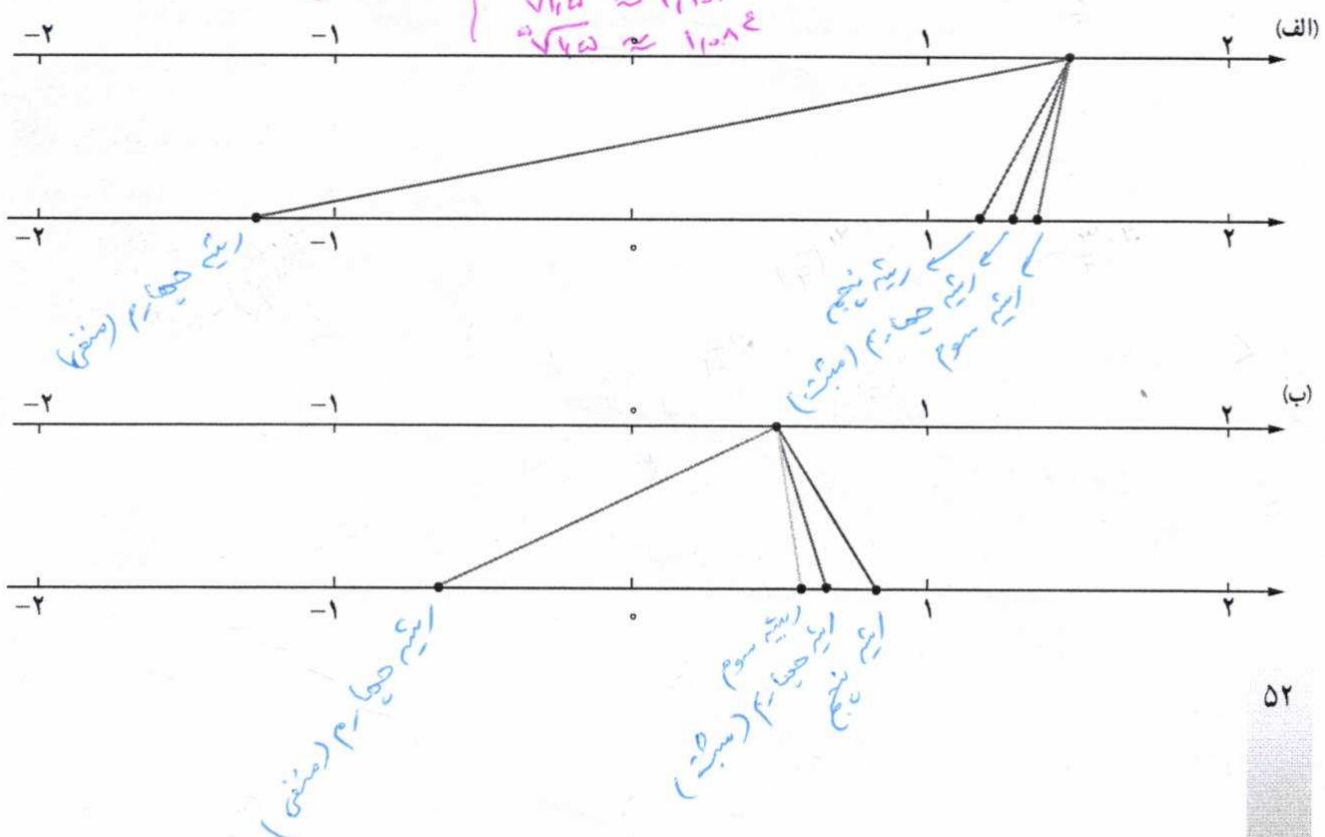 √۱٫۵ ≈
⁵√۱٫۵ ≈ ۱٫۰۸۴
(الف)
-۲ -۱ ۰ ۱ ۲
-۲ -۱ ۰ ۱ ۲
ریشه چهارم (منفی)
ریشه پنجم
ریشه چهارم (مثبت)
ریشه سوم
(ب)
-۲ -۱ ۰ ۱ ۲
-۲ -۱ ۰ ۱ ۲
ریشه چهارم (منفی)
ریشه سوم
ریشه چهارم (مثبت)
ریشه پنجم
۵۲